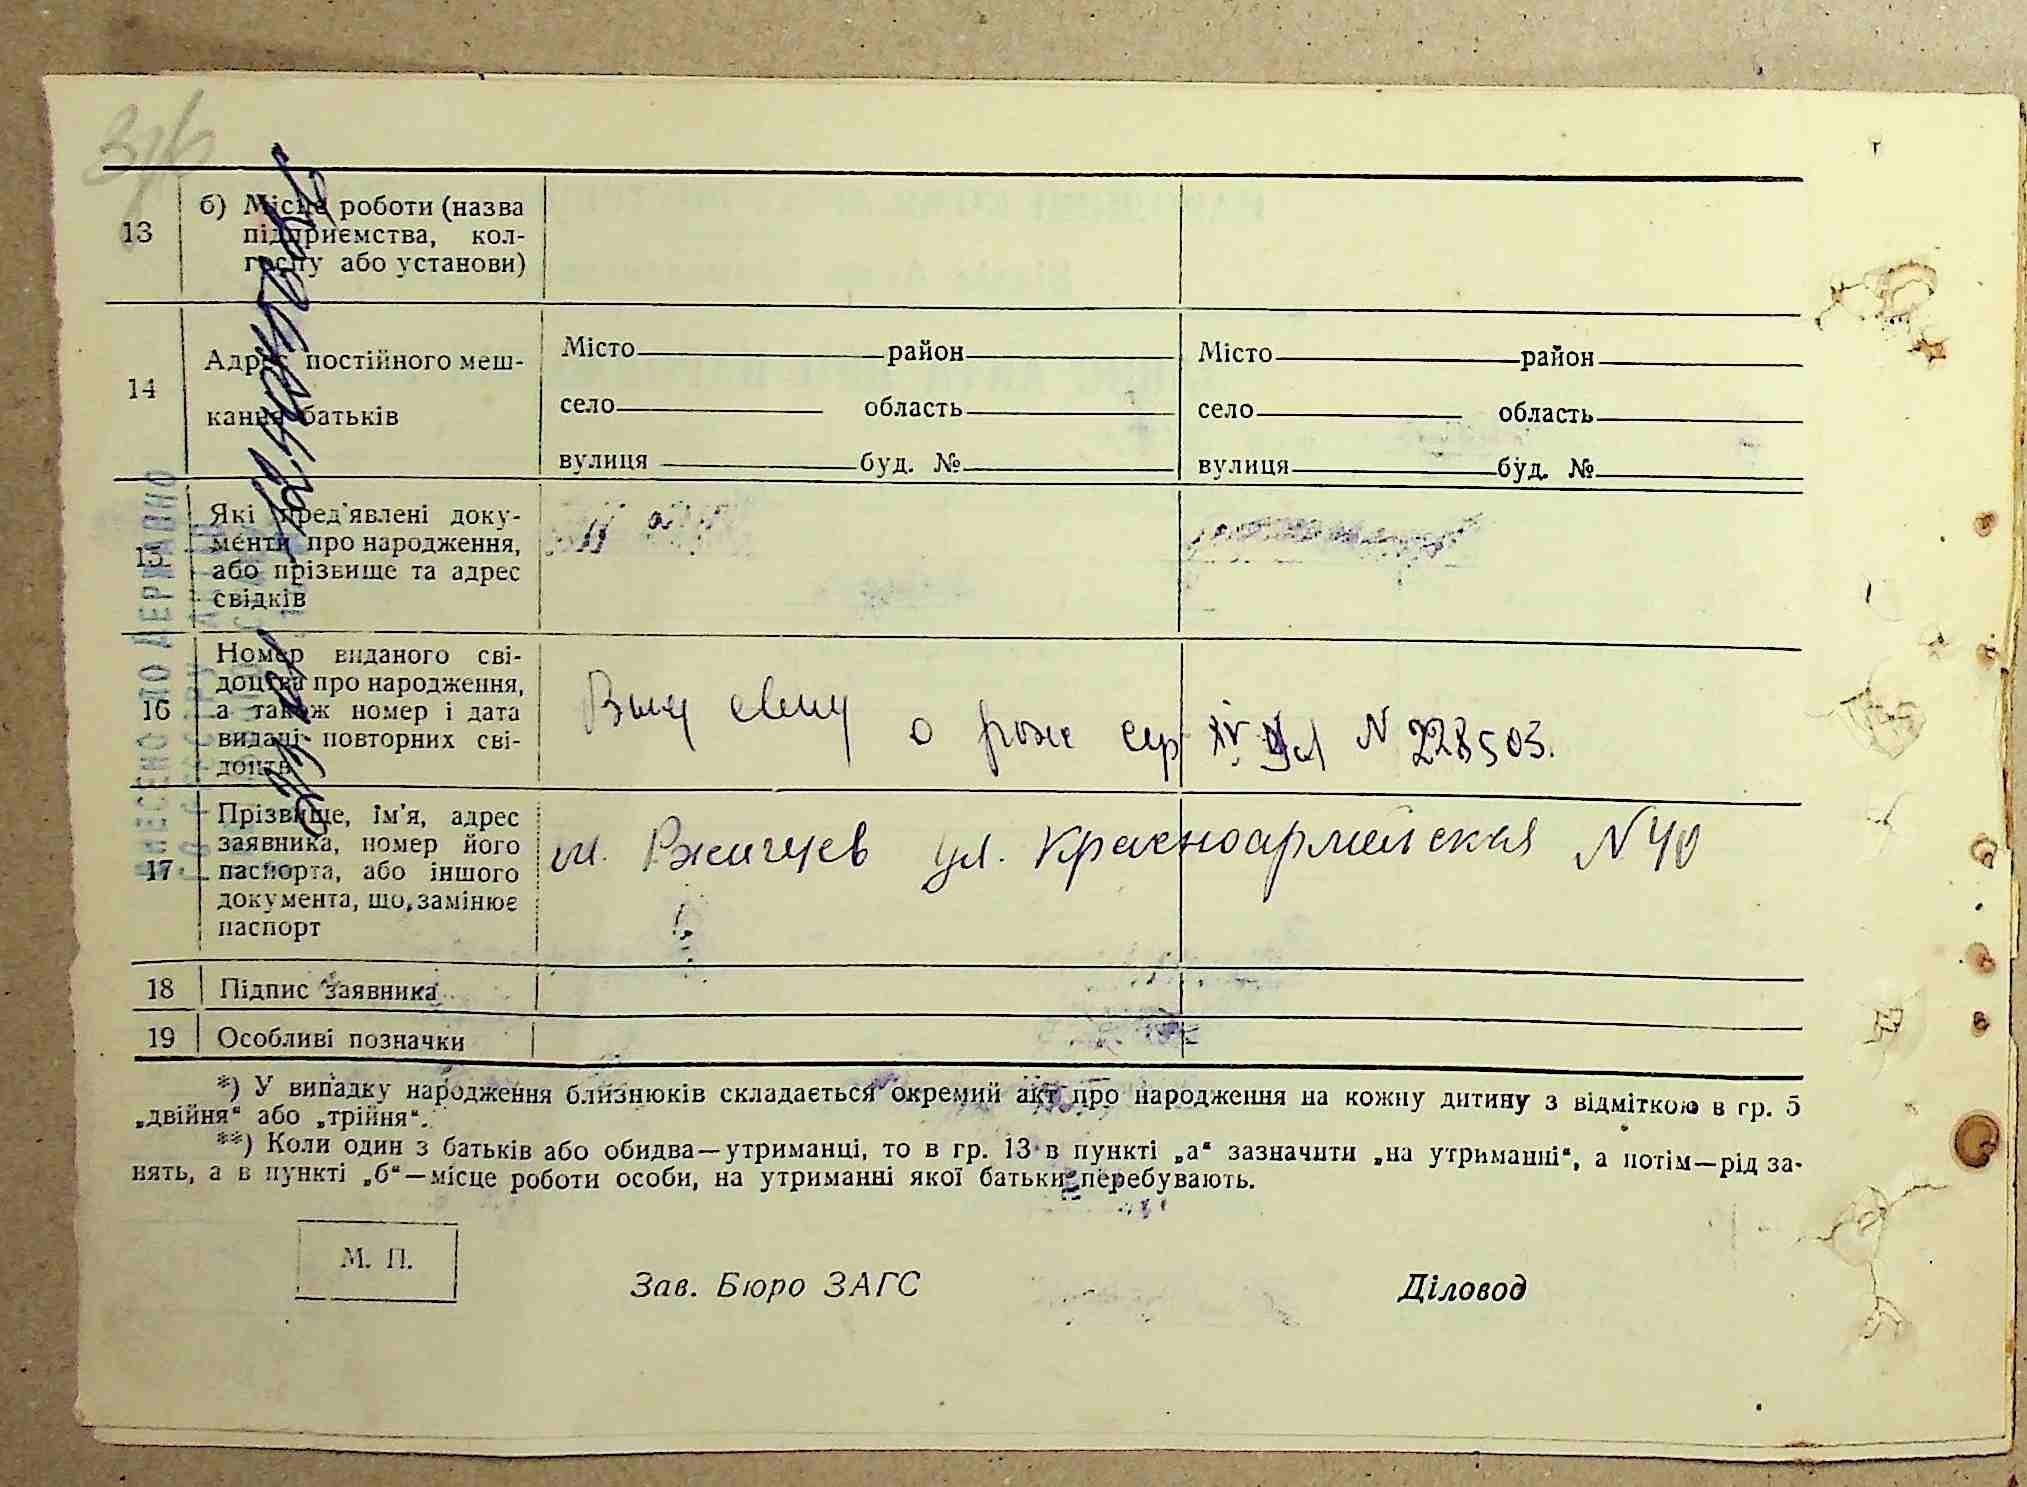 13
б) Місце роботи (назва
підприємства, кол-
госпу або установи)
14
Адрес постійного меш-
кання батьків
Місто район
село область
вулиця буд. №
Місто район
село область
вулиця буд. №
15
Які пред'явлені доку-
менти про народження,
або прізвище та адрес
свідків
16
Номер виданого сві-
доцтва про народження,
а також номер і дата
видачі повторних сві-
доцтв
о рож сер XIV N 228503.
17
Прізвище, ім'я, адрес
заявника, номер його
паспорта, або іншого
документа, що замінює
паспорт
м. Ржищев ул. Красноармейская N 40
18 Підпис заявника
19 Особливі позначки
*) У випадку народження близнюків складається окремий акт про народження на кожну дитину з відміткою в гр. 5
„двійня“ або „трійня“.
**) Коли один з батьків або обидва—утриманці, то в гр. 13 в пункті „а“ зазначити „на утриманні“, а потім—рід за-
нять, а в пункті „б“—місце роботи особи, на утриманні якої батьки перебувають.
М. П.
Зав. Бюро ЗАГС
Діловод
ВНЕСЕНО ДО ДЕРЖАВНО